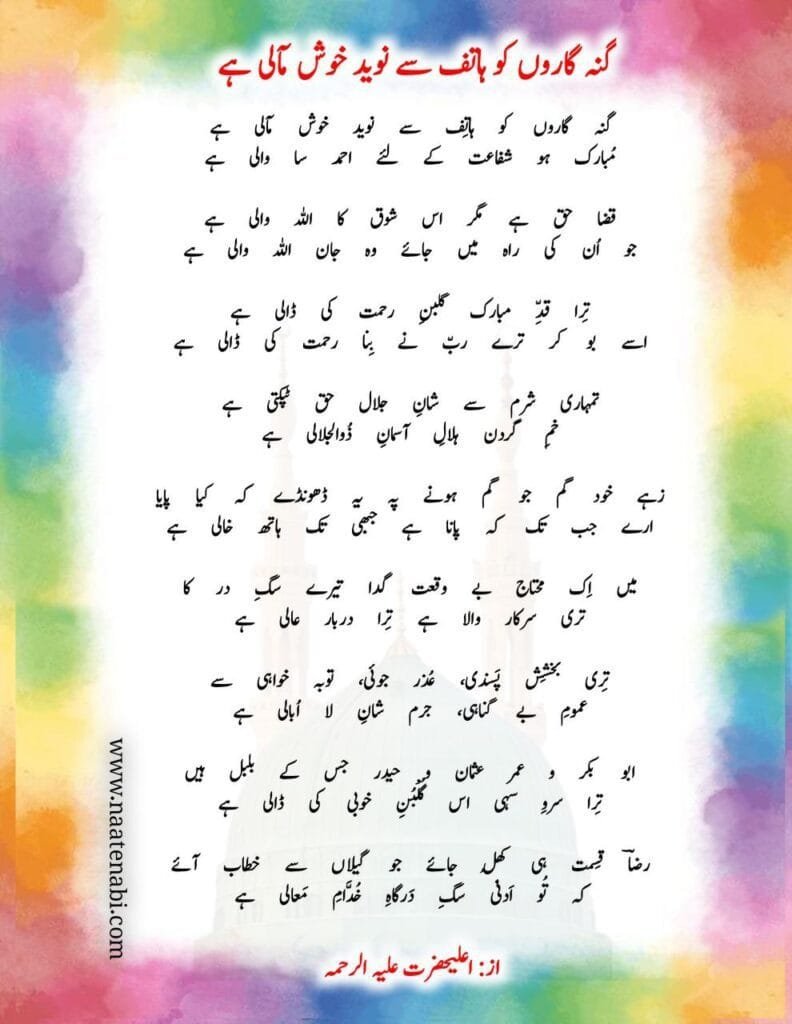 گنہ گاروں کو ہاتف سے نوید خوش مآلی ہے
گنہ گاروں کو ہاتِف سے نوید خوش مآلی ہے
مُبارک ہو شفاعت کے لئے احمد سا والی ہے
قضا حق ہے مگر اس شوق کا اللہ والی ہے
جو اُن کی راہ میں جائے وہ جان اللہ والی ہے
تِرا قدِّ مبارک گلبنِ رحمت کی ڈالی ہے
اسے بو کر ترے ربّ نے بِنا رحمت کی ڈالی ہے
تمہاری شرم سے شانِ جلال حق ٹپکتی ہے
خمِ گردن ہلالِ آسمانِ ذُوالجلالی ہے
زہے خود گم جو گم ہونے پہ یہ ڈھونڈے کہ کیا پایا
ارے جب تک کہ پانا ہے جبھی تک ہاتھ خالی ہے
میں اِک محتاج بے وقعت گدا تیرے سگِ در کا
تری سرکار والا ہے تِرا دربار عالی ہے
تِری بخشِش پَسندی، عُذر جوئی، توبہ خواہی سے
عمومِ بے گناہی، جرم شانِ لا اُبالی ہے
ابو بکر و عمر عثمان و حیدر جس کے بلبل ہیں
تِرا سروِ سہی اس گُلبُنِ خوبی کی ڈالی ہے
رضاؔ قِسمت ہی کھل جائے جو گیلاں سے خطاب آئے
کہ تُو اَدنیٰ سگِ دَرگاہِ خُدَّامِ مَعالی ہے
از: اعلیحضرت علیہ الرحمہ
www.naatenabi.com